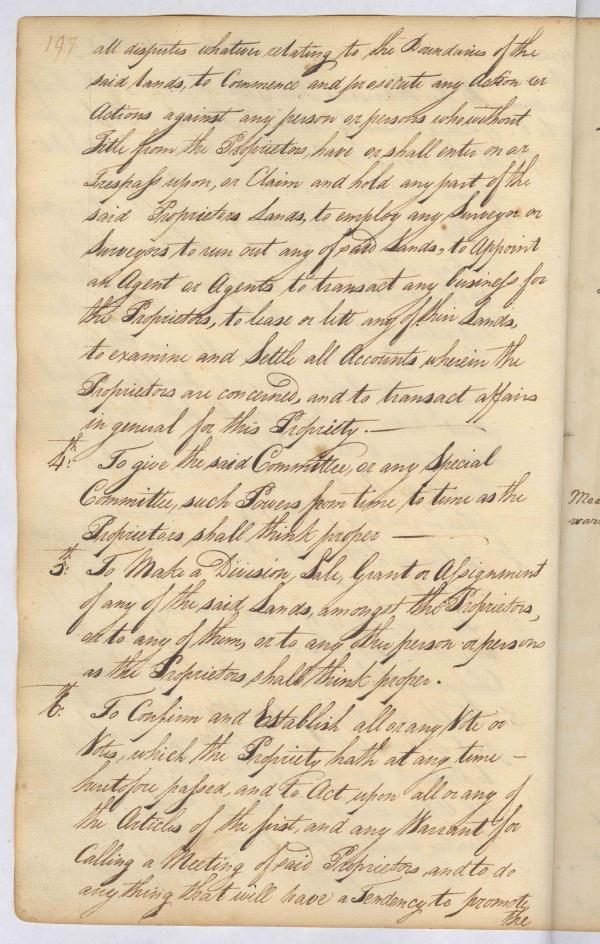 197
all disputes whatever relating to the Boundaries of the
said Lands, to Commence and prosecute any Action or
Actions against any person or persons who without
Title from the Proprietors, have or shall enter on or
Trespass upon, or Claim and hold any part of the
said Proprietors Lands, to employ any Surveyor or
Surveyors to run out any of said Lands, to Appoint
an Agent or Agents to transact any business for
the Proprietors, to lease or lett any of their Lands,
to examine and Settle all Accounts wherein the
Proprietors are concerned, and to transact affairs
in general for this Propriety. —
4th: To give the said Committee, or any Special
Committee, such Powers from time to time as the
Proprietors shall think proper —
5th: To Make a Division, Sale, Grant or Assignment
of any of the said Lands, amongst the Proprietors,
or to any of them, or to any other person or persons
as the Proprietors, shall think proper.
6th: To Confirm and Establish all or any Vote or
Votes, which the Propriety hath at any time –
heretofore passed, and to Act upon all or any of
the Articles of the first, and any Warrant for
Calling a Meeting of said Proprietors, and to do
any thing that will have a Tendency to promote
the